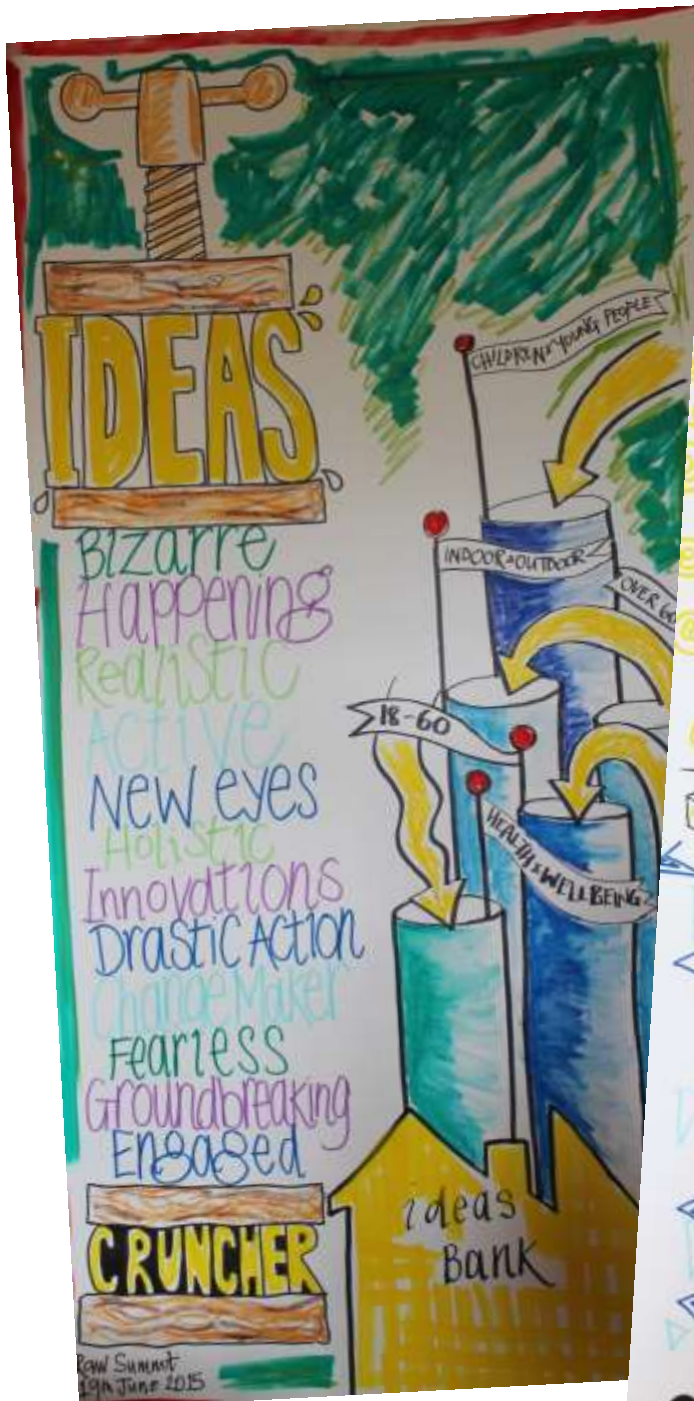 IDEAS
Bizarre
Happening
Realistic
Active
New eyes
Holistic
Innovations
Drastic Action
Change Maker
Fearless
Groundbreaking
Engaged
CRUNCHER
Raw Summit
19th June 2015
CHILDREN & YOUNG PEOPLE
INDOOR & OUTDOOR
OVER 60
18-60
HEALTH & WELLBEING
ideas
Bank